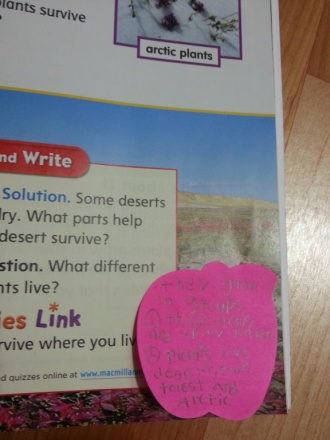 plants survive
?
arctic plants
nd Write
Solution. Some deserts
dry. What parts help
desert survive?
stion. What different
nts live?
ies Link
rvive where you liv
d quizzes online at www.macmillan
grow
in
①
②
desert
forest and
Arctic